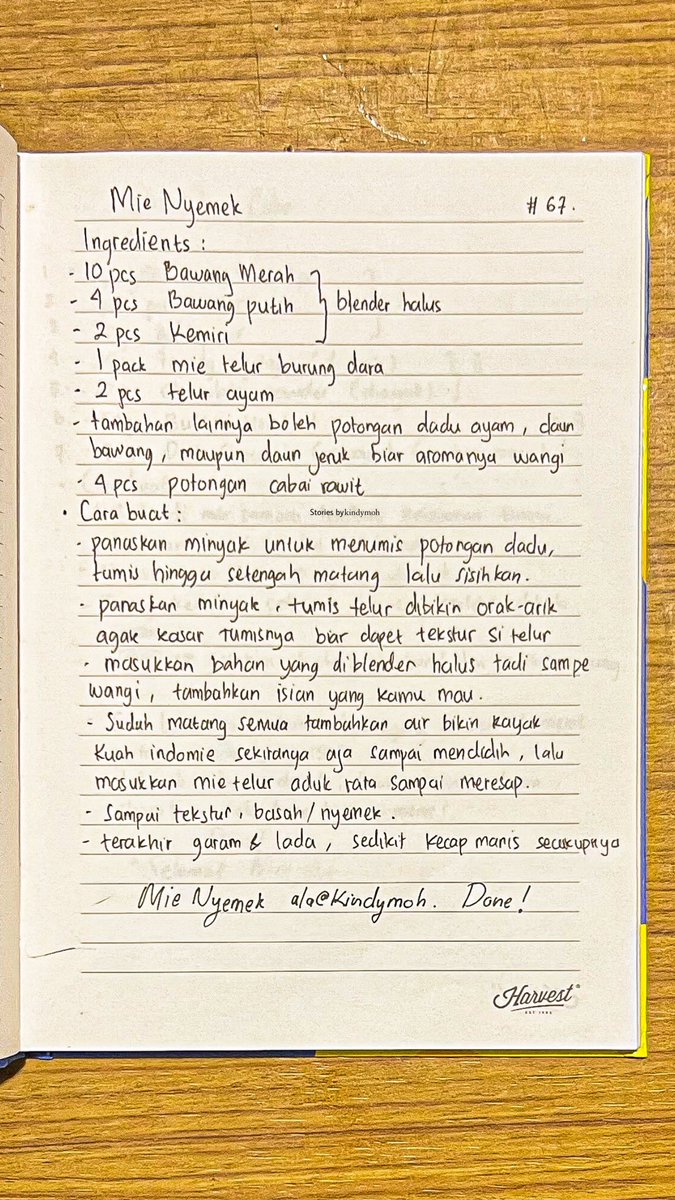 Mie Nyemek # 67.
Ingredients :
- 10 pcs Bawang Merah
- 4 pcs Bawang putih } blender halus
- 2 pcs Kemiri
- 1 pack mie telur burung dara
- 2 pcs telur ayam
- tambahan lainnya boleh potongan dadu ayam, daun
bawang, maupun daun jeruk biar aromanya wangi
- 4 pcs potongan cabai rawit
• Cara buat :
Stories by kindymoh
- panaskan minyak untuk menumis potongan dadu,
tumis hingga setengah matang lalu sisihkan.
- panaskan minyak, tumis telur dibikin orak-arik
agak kasar tumisnya biar dapet tekstur si telur
- masukkan bahan yang diblender halus tadi sampe
wangi, tambahkan isian yang kamu mau.
- Sudah matang semua tambahkan air bikin kayak
kuah indomie sekiranya aja sampai mendidih, lalu
masukkan mie telur aduk rata sampai meresap.
- Sampai tekstur, basah/nyemek.
- terakhir garam & lada, sedikit kecap manis secukupnya
Mie Nyemek ala@Kindymoh. Done!
Harvest
EST 1994